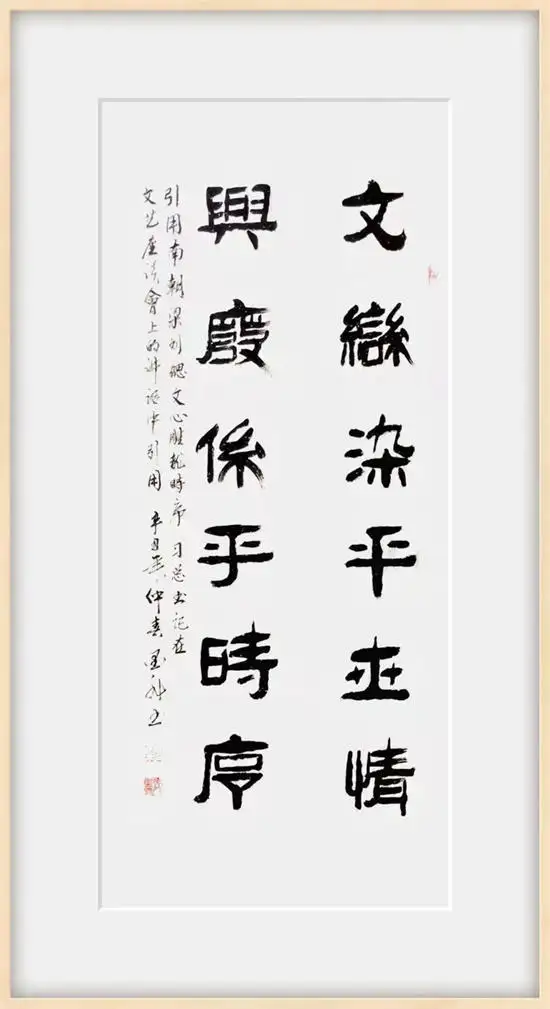 文變染平世情
興廢係乎時序
引用南朝梁刘勰文心雕龙時序 习总书记在
文艺座谈會上的讲话中引用 辛丑年仲春 书